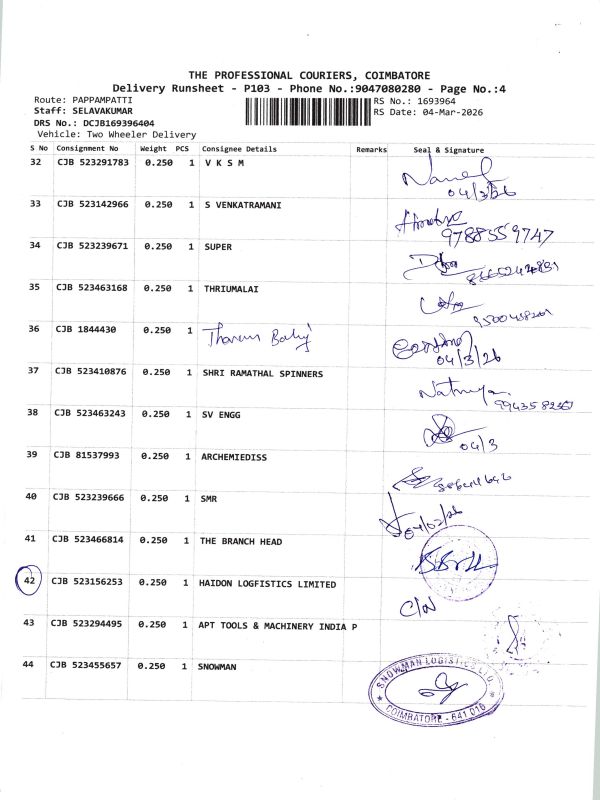 THE PROFESSIONAL COURIERS, COIMBATORE
Delivery Runsheet - P103 - Phone No.:9047080280 - Page No.:4
Route: PAPPAMPATTI RS No.: 1693964
Staff: SELAVAKUMAR RS Date: 04-Mar-2026
DRS No.: DCJB169396404
Vehicle: Two Wheeler Delivery
S No Consignment No Weight PCS Consignee Details Remarks Seal & Signature
32 CJB 523291783 0.250 1 V K S M
04/3/26
33 CJB 523142966 0.250 1 S VENKATRAMANI
9788559747
34 CJB 523239671 0.250 1 SUPER
35 CJB 523463168 0.250 1 THRIUMALAI
36 CJB 1844430 0.250 1
04/3/26
37 CJB 523410876 0.250 1 SHRI RAMATHAL SPINNERS
38 CJB 523463243 0.250 1 SV ENGG
04/3
39 CJB 81537993 0.250 1 ARCHEMIEDISS
40 CJB 523239666 0.250 1 SMR
04/03/26
41 CJB 523466814 0.250 1 THE BRANCH HEAD
42 CJB 523156253 0.250 1 HAIDON LOGFISTICS LIMITED
43 CJB 523294495 0.250 1 APT TOOLS & MACHINERY INDIA P
44 CJB 523455657 0.250 1 SNOWMAN
SNOWMAN LOGISTICS LTD
COIMBATORE - 641 016